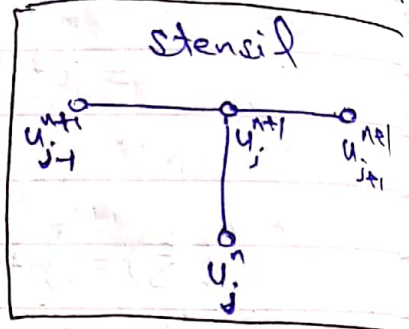 stensil
u_{j-1}^{n+1} u_j^{n+1} u_{j+1}^{n+1}
u_j^n